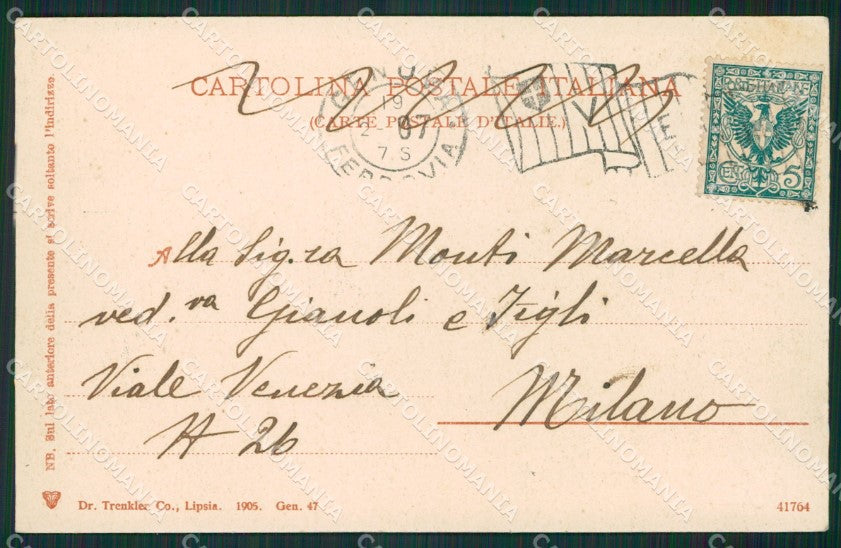 CARTOLINA POSTALE ITALIANA
(CARTE POSTALE D'ITALIE.)
GENOVA
19
2 07
7.S
FERROVIA
POSTE ITALIANE
CENT. 5
Alla Sig.ra Monti Marcella
ved.va Gianoli e Figli
Viale Venezia
N 26
Milano
NB. Sul lato anteriore della presente si scrive soltanto l'indirizzo.
Dr. Trenkler Co., Lipsia. 1905. Gen. 47
41764
CARTOLINOMANIA